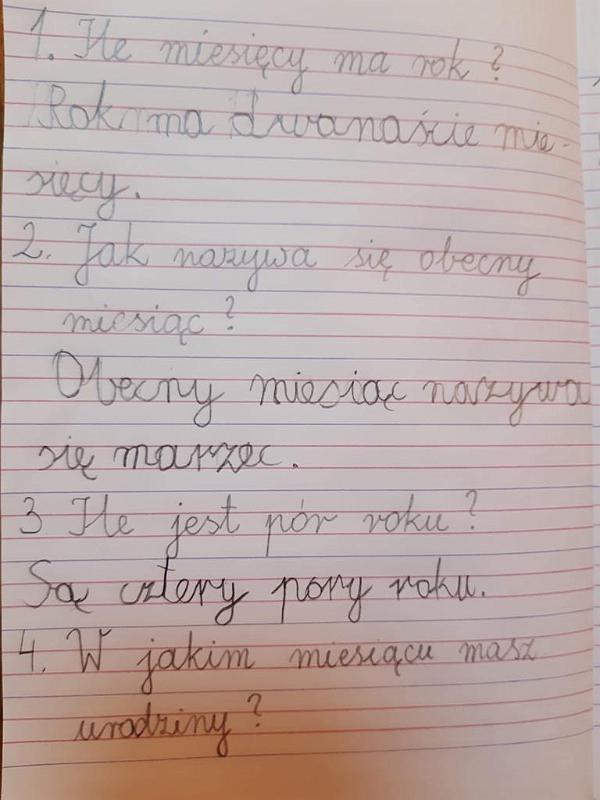 1. Ile miesięcy ma rok?
Rok ma dwanaście mie-
sięcy.
2. Jak nazywa się obecny
miesiąc?
Obecny miesiąc nazywa
się marzec.
3 Ile jest pór roku?
Są cztery pory roku.
4. W jakim miesiącu masz
urodziny?